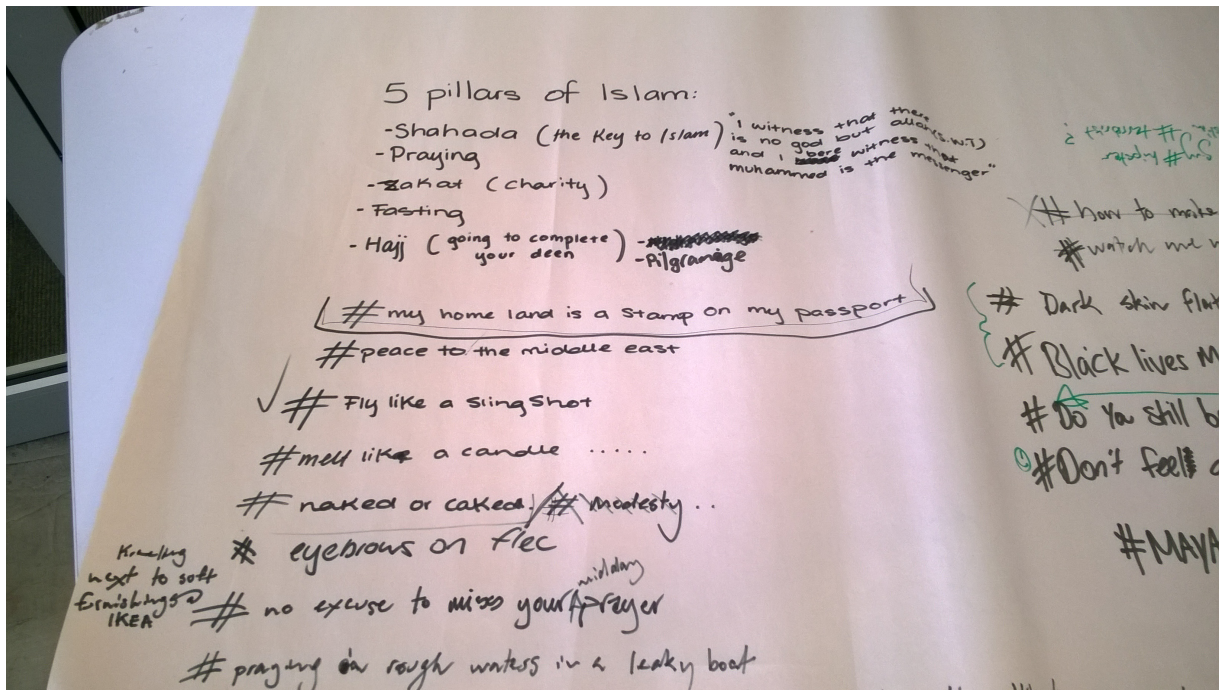 5 pillars of Islam:
-Shahada (the Key to Islam)
"I witness that there
is no god but allah (S.W.T)
and I bore witness that
muhammed is the messenger"
-Praying
-Zakat (charity)
-Fasting
-Hajj (going to complete your deen)
-Pilgramage
#my home land is a stamp on my passport
#peace to the middle east
# Fly like a slingshot
#melt like a candle .....
# naked or caked! / # Modesty ..
# eyebrows on flec
Kneeling
next to soft
furnishings @
IKEA
# no excuse to miss your midday prayer
# praying in rough waters in a leaky boat
# terrorist ?
# hipster
# how to make
#watch me
# Dark skin
# Black lives M
# Do You still b
#Don't feel
#MAYA